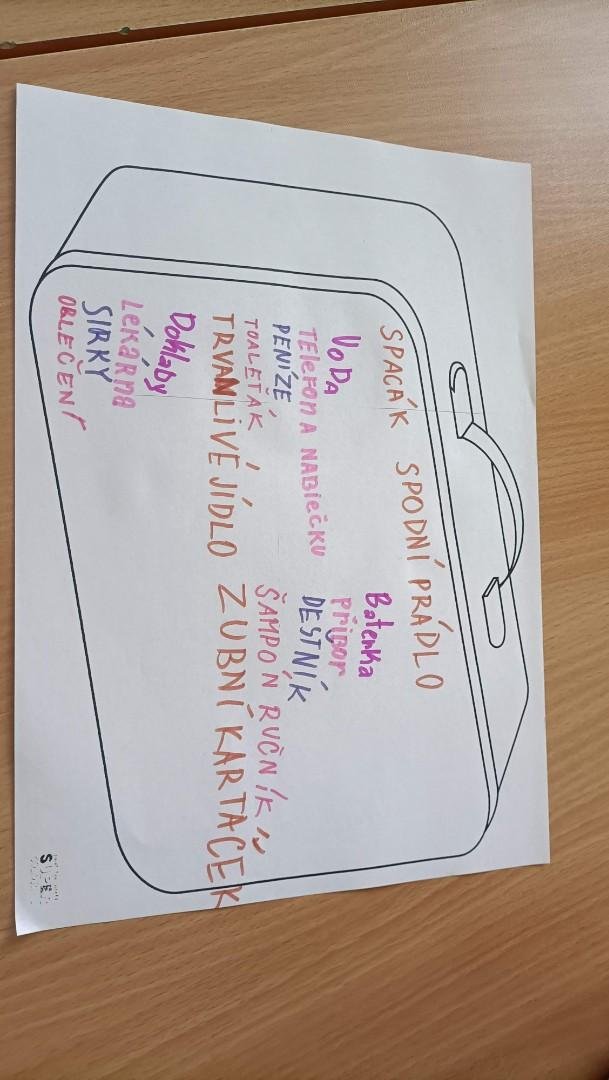 SPACÁK SPODNÍ PRÁDLO
VoDa
TElEFon A NABíEČKU
PENÍZE
TOALEŤÁK
TRVANLIVÉ JÍDLO
Doklady
LéKáRna
SIRKY
OBLEČENÍ
Baterka
příbor
DEŠTNÍK
ŠAMPON RUČNÍK
ZUBNÍ KARTÁČEK